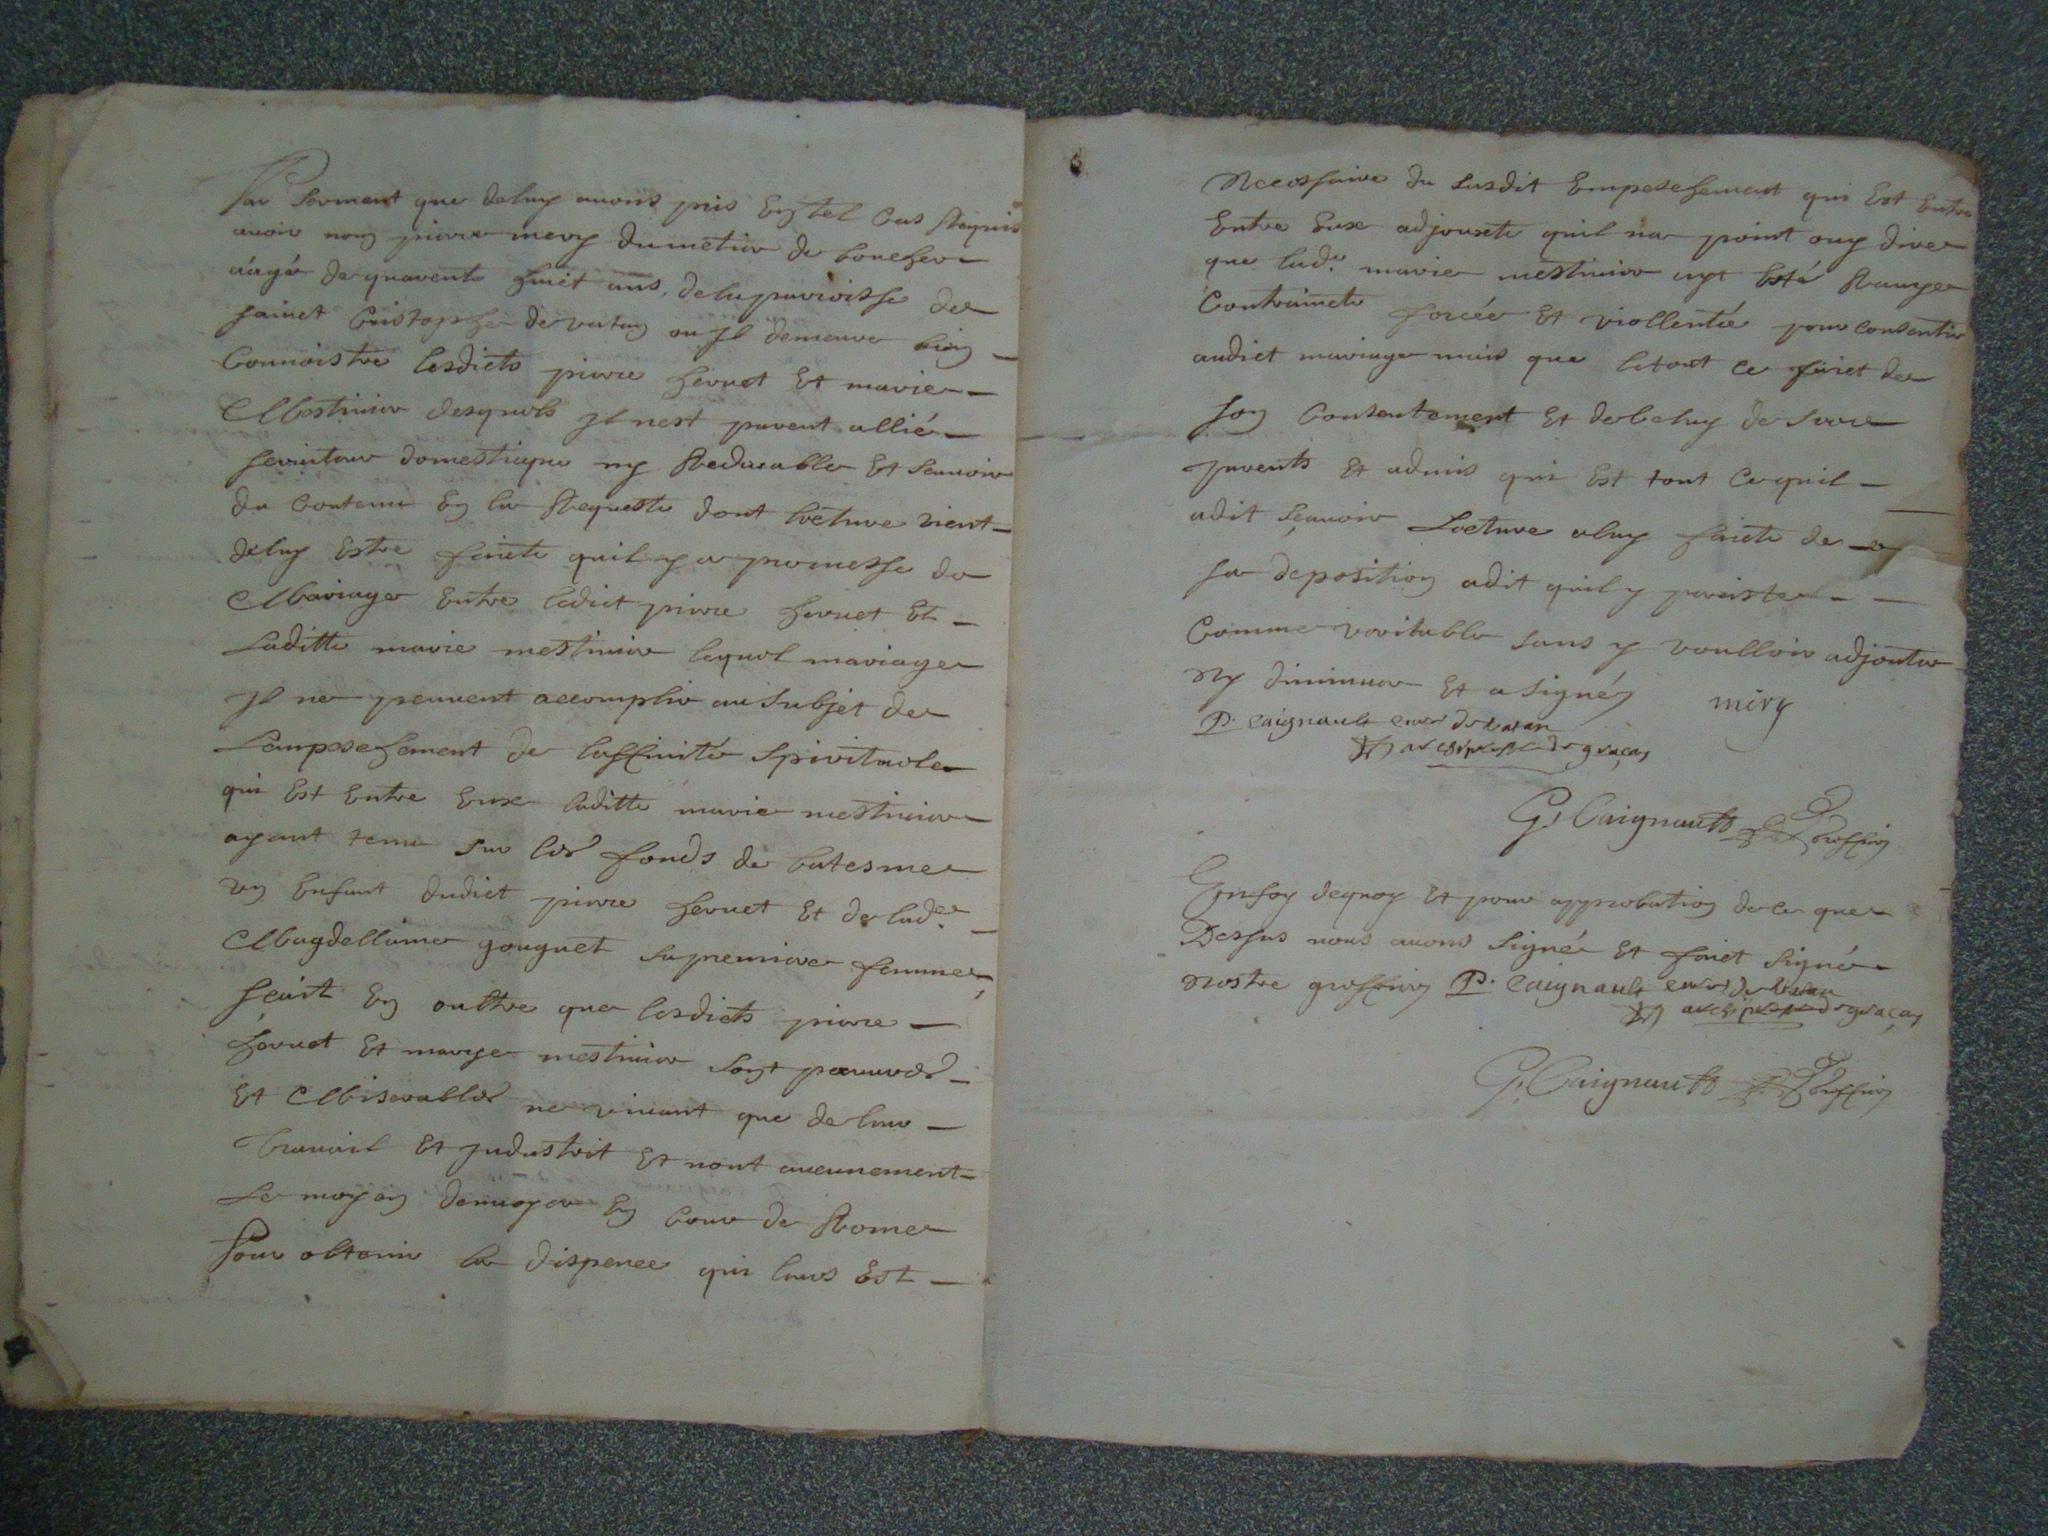 Par serment que deluy auons pris En tel Cas Requis
auoir nom pierre mery du metier de boucher
aâgé de quarente huict ans, de la parroisse de
sainct Cristophe de vatan ou Il demeure bien
Connoistre lesdicts pierre heruet Et marie
Mestiuier desquels Il nest parent allié
seruiteur domestique ny Redeuable Et scauoir
du Contenu En la Requeste dont lecture vient
deluy Estre faicte quil y a promesse de
Mariage Entre ledict pierre heruet Et
Laditte marie mestiuier lequel mariage
Il ne peuuent accomplir au subjet de
Lempeschement de laffinité spirituele
qui Est Entre Eux laditte marie mestiuier
ayant tenu sur les fonds de batesme
vn Enfant dudict pierre heruet Et de lade.
Magdellaine gouguet sa premiere femme,
scait En oultre que lesdicts pierre
heruet Et marye mestiuier sont pauures
Et Miserables ne viuant que de leur
Trauail Et Industrit Et nont aucunement
Le moyen denuoyer En Cour de Rome
Pour obtenir la dispence qui leurs Est
Necessaire du susdit Empeschement qui Est Entre
Entre Eux adjouxte quil na point ouy dire
que lade. marie mestiuier ayt Esté
Contraincte forcée Et viollentée pour consentir
audict mariage mais que letout ce faict de
son Consentement Et de Celuy de
parents Et admis qui Est tout Ce quil
adit sçauoir Lecture aluy faicte de
sa deposition adit quil y persiste
Comme veritable sans y voulloir adjouter
Ny diminuer Et a signé mery
P. Caignault curé de vatan
archiprestre de graçay
G. Caignault greffier
En foy dequoy Et pour approbation de ce que
Dessus nous auons signé Et faict signé
Nostre greffier P. Caignault curé de vatan
archiprestre de graçay
G. Caignault greffier